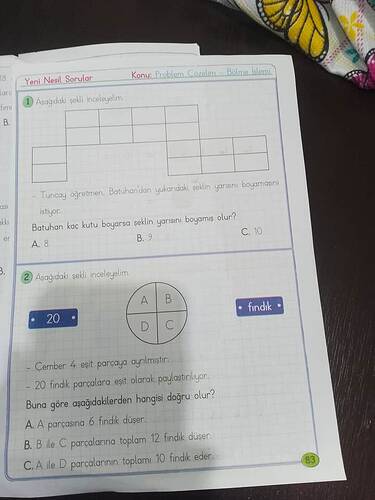 Yeni Nesil Sorular
Konu: Problem Çözelim - Bölme İşlemi
1 Aşağıdaki şekli inceleyelim.
- Tuncay öğretmen, Batuhan'dan yukarıdaki şeklin yarısını boyamasını
istiyor.
Batuhan kaç kutu boyarsa şeklin yarısını boyamış olur?
A. 8 B. 9 C. 10
2 Aşağıdaki şekli inceleyelim.
A B
20
fındık
D C
- Çember 4 eşit parçaya ayrılmıştır.
- 20 fındık parçalara eşit olarak paylaştırılıyor.
Buna göre aşağıdakilerden hangisi doğru olur?
A. A parçasına 6 fındık düşer.
B. B ile C parçalarına toplam 12 fındık düşer.
C. A ile D parçalarının toplamı 10 fındık eder.
83